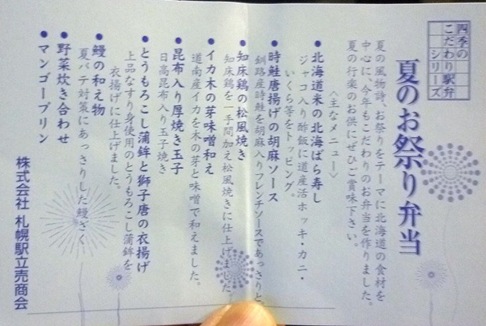 四季の
こだわり駅弁
シリーズ
夏のお祭り弁当
夏の風物詩、お祭りをテーマに北海道の食材を
中心に、今年もこだわりのお弁当を作りました。
夏の行楽のお供にぜひご賞味下さい。
〈主なメニュー〉
●北海道米の北海ばら寿し
ジャコ入り酢飯に道産活ホッキ・カニ・
いくら等をトッピング。
●時鮭唐揚げの胡麻ソース
釧路産時鮭を胡麻入りフレンチソースであっさりと
●知床鶏の松風焼き
知床鶏を一手間加え松風焼きに仕上げました
●イカ木の芽味噌和え
道南産イカを木の芽と味噌で和えました。
●昆布入り厚焼き玉子
日高昆布入り玉子焼き
●とうもろこし蒲鉾と獅子唐の衣揚げ
上品なすり身使用のとうもろこし蒲鉾を
衣揚げに仕上げました。
●鰻の和え物
夏バテ対策にあっさりした鰻ざく
●野菜炊き合わせ
●マンゴープリン
株式会社 札幌駅立売商会